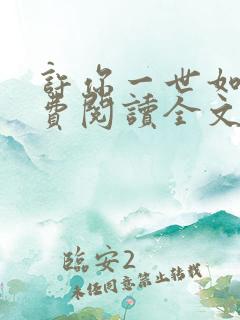 許你一世如
費閱讀全文
臨安2
未經同意禁止轉載